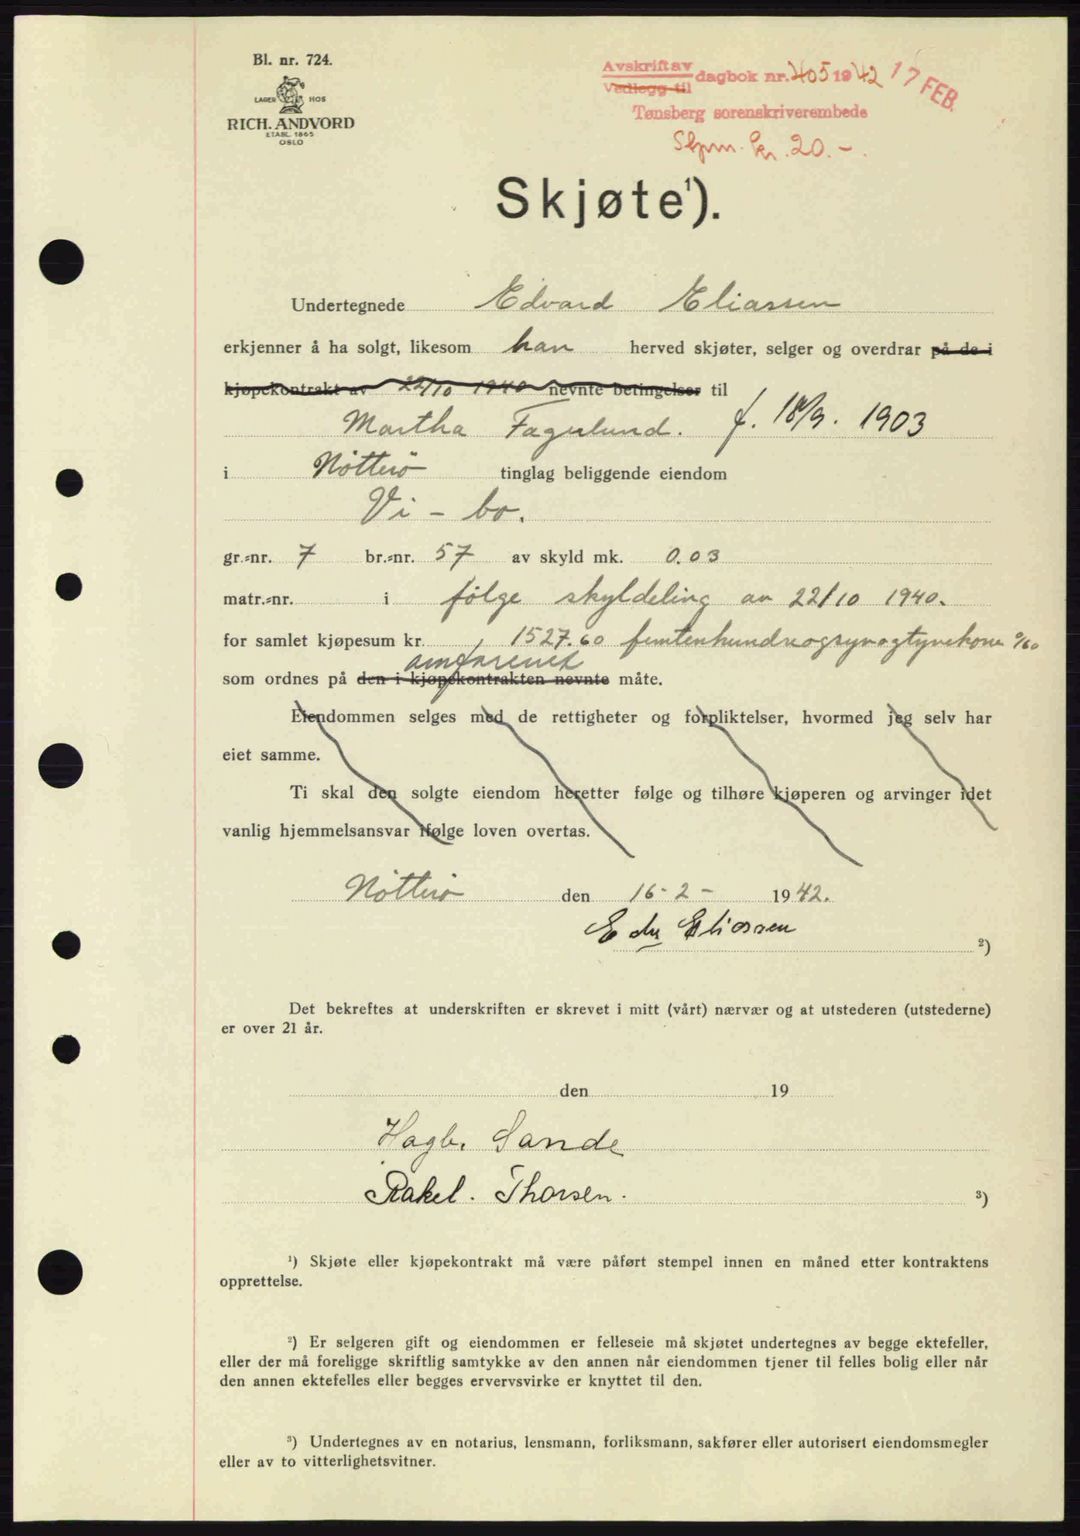 Bl. nr. 724.
LAGER HOS
RICH. ANDVORD
ETABL. 1865
OSLO
Avskrift av
Vedlegg til
dagbok nr. 405 1942 17 FEB.
Tønsberg sorenskriverembede
Stpm. kr. 20.-
Skjøte¹).
Undertegnede Edvard Eliassen
erkjenner å ha solgt, likesom han herved skjøter, selger og overdrar på de i
kjøpekontrakt av 22/10 1940 nevnte betingelser til
Martha Fagerlund. f. 18/9. 1903
i Nötterö tinglag beliggende eiendom
Vi - bo.
gr.-nr. 7 br.-nr. 57 av skyld mk. 0.03
matr.-nr. i følge skyldeling av 22/10 1940.
for samlet kjøpesum kr. 1527.60 femtenhundreogsyvogtyvekroner 0/60
omforenet
som ordnes på den i kjøpekontrakten nevnte måte.
Eiendommen selges med de rettigheter og forpliktelser, hvormed jeg selv har
eiet samme.
Ti skal den solgte eiendom heretter følge og tilhøre kjøperen og arvinger idet
vanlig hjemmelsansvar ifølge loven overtas.
Nötterö den 16-2- 1942.
Edv Eliassen
²)
Det bekreftes at underskriften er skrevet i mitt (vårt) nærvær og at utstederen (utstederne)
er over 21 år.
den 19
Hagb. Sande
Rakel. Thorsen. ³)
¹) Skjøte eller kjøpekontrakt må være påført stempel innen en måned etter kontraktens
opprettelse.
²) Er selgeren gift og eiendommen er felleseie må skjøtet undertegnes av begge ektefeller,
eller der må foreligge skriftlig samtykke av den annen når eiendommen tjener til felles bolig eller når
den annen ektefelles eller begges ervervsvirke er knyttet til den.
³) Undertegnes av en notarius, lensmann, forliksmann, sakfører eller autorisert eiendomsmegler
eller av to vitterlighetsvitner.